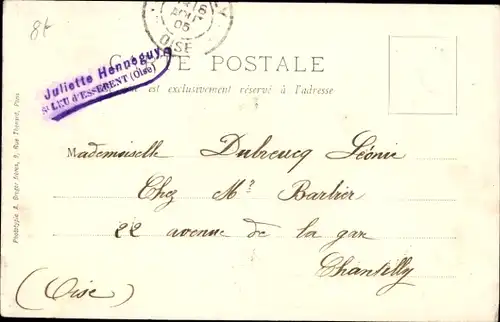 8t
6
AOUT
05
OISE
CARTE POSTALE
est exclusivement réservé à l'adresse
Juliette Henneguy
St LEU d'ESSERENT (Oise)
Mademoiselle Dubreucq Léonie
Chez Mr Barbier
22 avenue de la gar
Chantilly
(Oise)
Phototypie A. Breger frères, 9, Rue Thénard, Paris